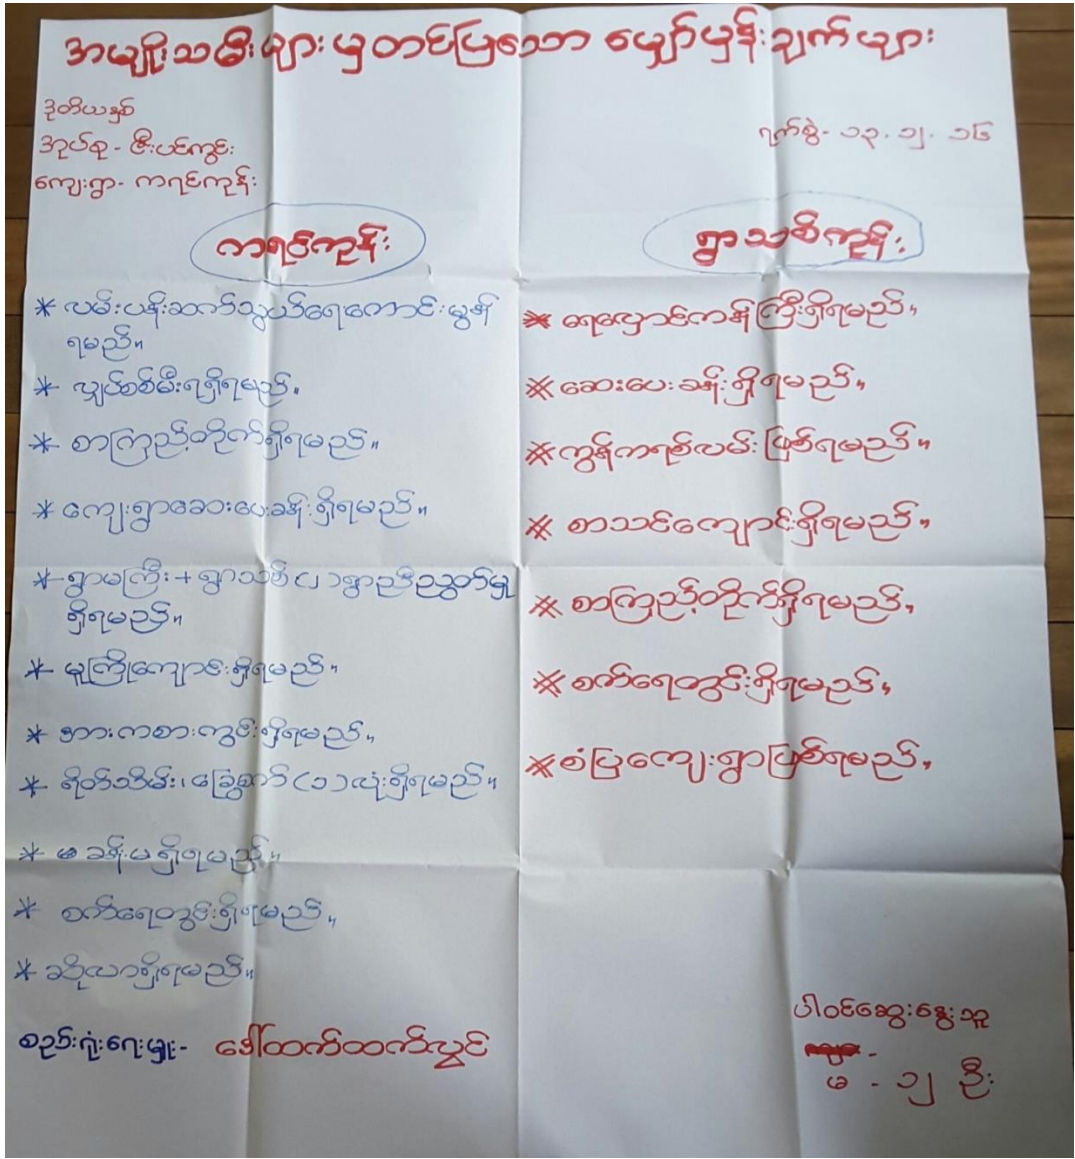 အမျိုးသမီးများမှတင်ပြသော မျှော်မှန်းချက်များ
ဒုတိယနှစ်
အုပ်စု - ဇီးပင်ကွင်း
ကျေးရွာ - ကရင်ကုန်း
ရက်စွဲ - ၁၃.၁၂.၁၆
ကရင်ကုန်း
* လမ်းပန်းဆက်သွယ်ရေးကောင်းမွန်
ရမည်။
* လျှပ်စစ်မီးရရှိရမည်။
* စာကြည့်တိုက်ရှိရမည်။
* ကျေးရွာဆေးပေးခန်းရှိရမည်။
* ရွာမကြီး + ရွာသစ် (၂) ရွာညီညွတ်မှု
ရှိရမည်။
* မူကြိုကျောင်းရှိရမည်။
* အားကစားကွင်းရှိရမည်။
* ရိတ်သိမ်း၊ ခြွေစက် (၁) လုံးရှိရမည်။
* ခန်းမရှိရမည်။
* စက်ရေတွင်းရှိရမည်။
* ဆိုလာရှိရမည်။
စည်းရုံးရေးမှူး - ဒေါ်ထက်ထက်လွင်
ရွာသစ်ကုန်း
* ရေလှောင်ကန်ကြီးရှိရမည်။
* ဆေးပေးခန်းရှိရမည်။
* ကွန်ကရစ်လမ်းဖြစ်ရမည်။
* စာသင်ကျောင်းရှိရမည်။
* စာကြည့်တိုက်ရှိရမည်။
* စက်ရေတွင်းရှိရမည်။
* စံပြကျေးရွာဖြစ်ရမည်။
ပါဝင်ဆွေးနွေးသူ
မ - ၁၂ ဦး